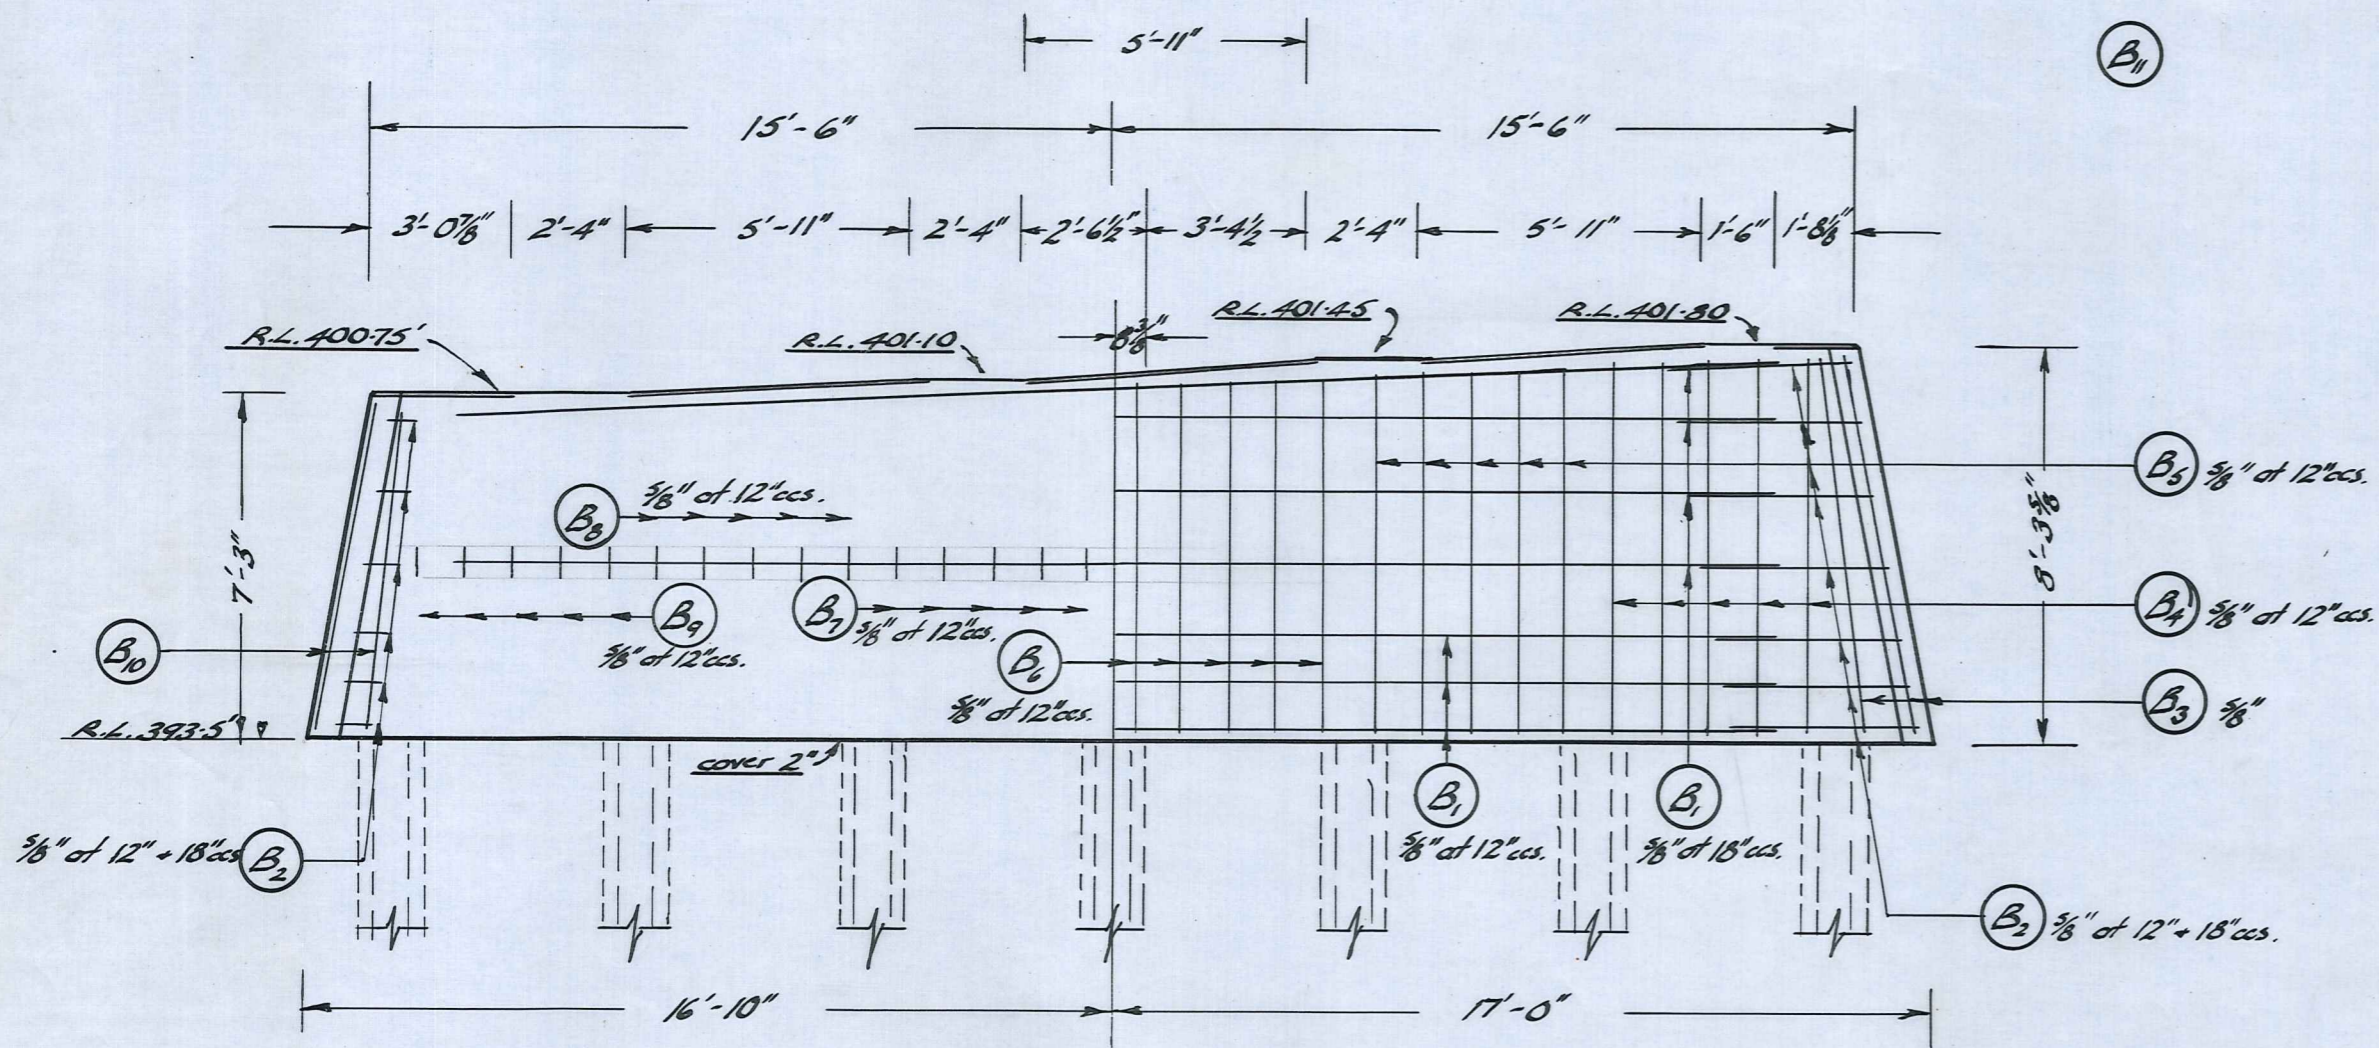 5'-11"
B11
15'-6" 15'-6"
3'-0⅞" 2'-4" 5'-11" 2'-4" 2'-6½" 3'-4½ 2'-4" 5'-11" 1'-6" 1'-8⅛"
R.L. 400·75' R.L. 401·10 8⅜" R.L. 401·45 R.L. 401·80
B5 5/8" at 12"ccs.
B8 5/8" at 12"ccs.
7'-3"
8'-3⅝"
B9 5/8" at 12"ccs.
B7 5/8" at 12"ccs.
B4 5/8" at 12"ccs.
B10
B6 5/8" at 12"ccs.
B3 5/8"
R.L. 393·5'
cover 2"
B1 5/8" at 12"ccs.
B1 5/8" at 18"ccs.
5/8" at 12" + 18"ccs B2
B2 5/8" at 12" + 18"ccs.
16'-10" 17'-0"